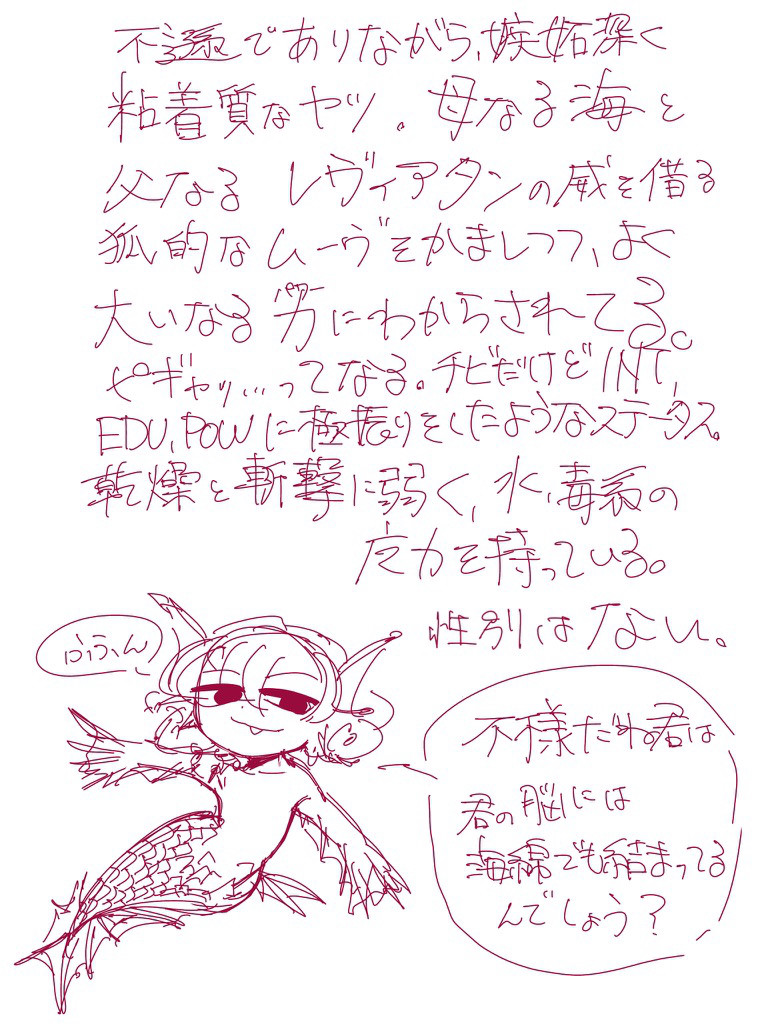 不遜でありながら、嫉妬深く
粘着質なヤツ。母なる海と
父なる レヴィアタンの威を借る
狐的なムーヴをかましつつ、よく
大いなる男にわからされてる。
ピギャッ…ってなる。チビだけどINT,
EDU,POWに極振りをしたようなステータス。
乾燥と斬撃に弱く、水、毒系の
力を持っている。
性別はない。
ふふん
不様だね君は
君の脳には
海綿でも詰まってる
んでしょう？